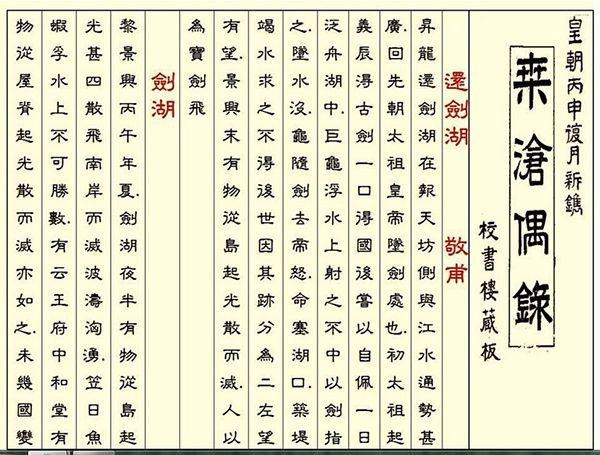 皇朝丙申復月新鐫
桒滄偶錄
校書樓藏板
還劍湖 敬甫
昇龍還劍湖在報天坊側與江水通勢甚
廣.回先朝太祖皇帝墜劍處也.初太祖起
義辰得古劍一口得國後嘗以自佩一日
泛舟湖中.巨龜浮水上射之不中以劍指
之.墜水没.龜隨劍去帝怒.命塞湖口.築堤
竭水求之不得後世因其跡分為二左望
有望.景興末有物從島起光散而滅.人以
為寶劍飛
劍湖
黎景興丙午年夏.劍湖夜半有物從島起
光甚四散飛南岸而滅波濤洶湧.笠日魚
蝦孚水上不可勝數.有云王府中和堂有
物從屋脊起光散而滅亦如之.未幾國變